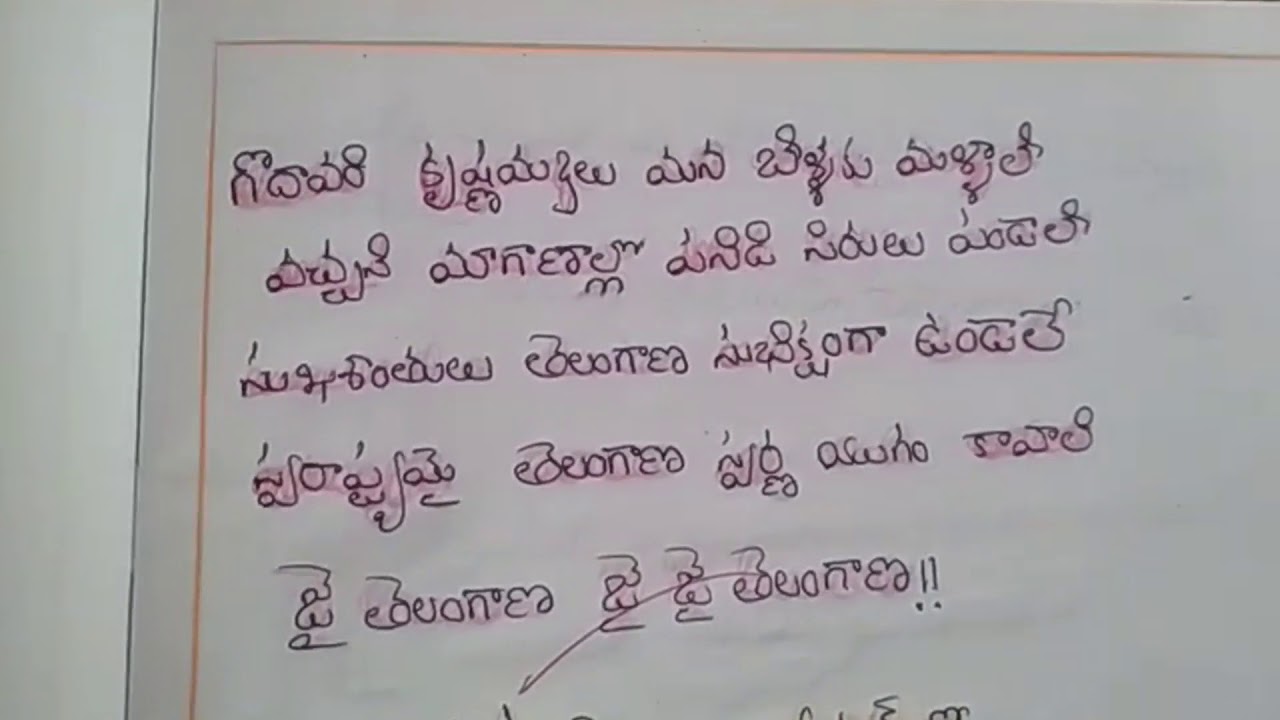 గోదావరి కృష్ణమ్మలు మన బీళ్ళకు మళ్ళాలి
పచ్చని మాగాణాల్లో పసిడి సిరులు పండాలి
సుఖశాంతులు తెలంగాణ సుభిక్షంగా ఉండాలే
స్వరాష్ట్రమై తెలంగాణ స్వర్ణ యుగం కావాలి
జై తెలంగాణ జై జై తెలంగాణ!!